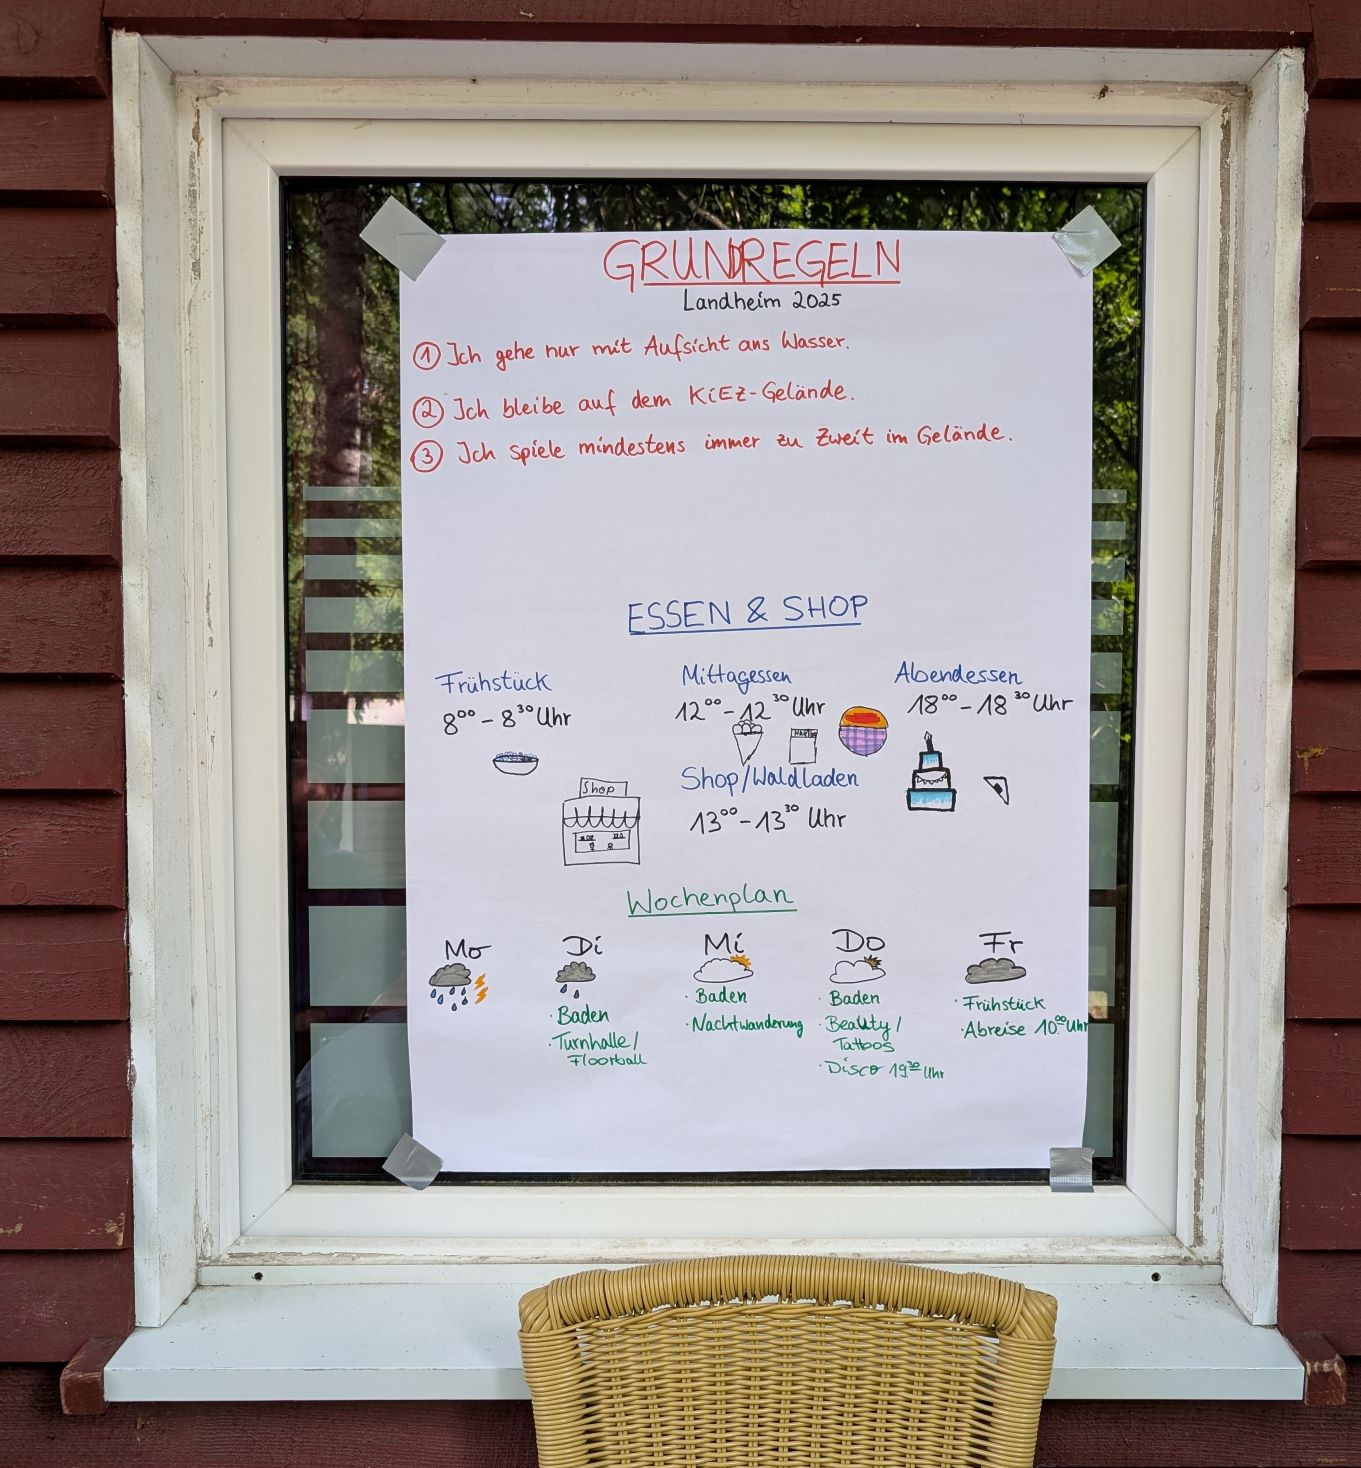 GRUNDREGELN
Landheim 2025
① Ich gehe nur mit Aufsicht ans Wasser.
② Ich bleibe auf dem KiEZ-Gelände.
③ Ich spiele mindestens immer zu Zweit im Gelände.
ESSEN & SHOP
Frühstück
8⁰⁰ - 8³⁰ Uhr
Mittagessen
12⁰⁰ - 12³⁰ Uhr
Abendessen
18⁰⁰ - 18³⁰ Uhr
Shop
Shop/Waldladen
13⁰⁰ - 13³⁰ Uhr
Wochenplan
Mo
Di
· Baden
· Turnhalle/
Floorball
Mi
· Baden
· Nachtwanderung
Do
· Baden
· Beauty/
Tattoos
· Disco 19³⁰ Uhr
Fr
· Frühstück
· Abreise 10⁰⁰ Uhr